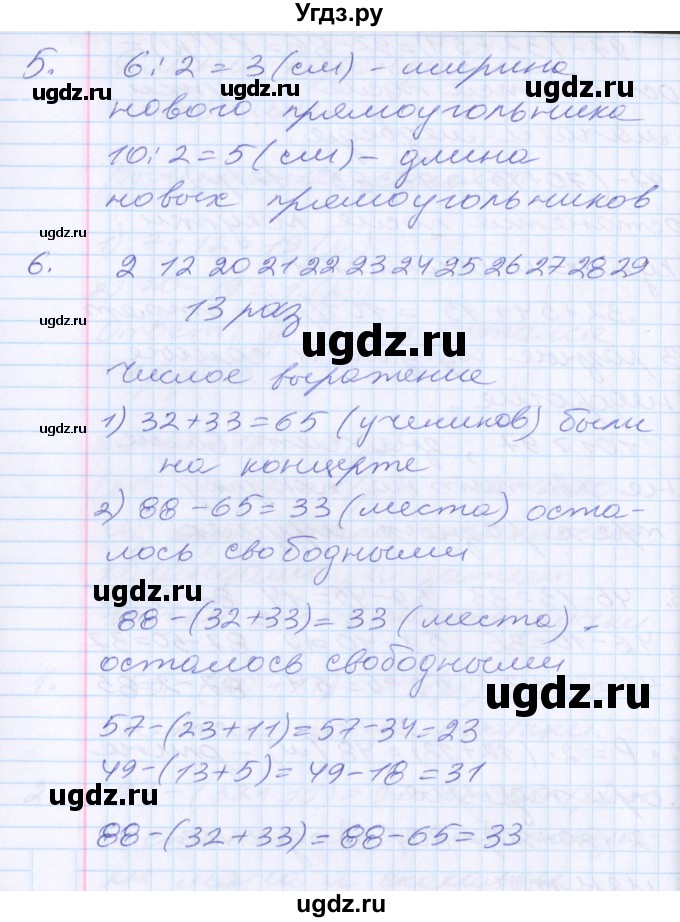 Угдз.ру
5. 6:2=3(см) - ширина
ugdz.ru ugdz.ru
нового прямоугольника
10:2=5(см) - длина
ugdz.ru
новых прямоугольников
ugdz.ru
6. 2 12 20 21 22 23 24 25 26 27 28 29
13 раз
ugdz.ru ugdz.ru
Числое выражение
1) 32+33=65 (учеников) были
ugdz.ru
на концерте
2) 88-65=33 (места) оста-
лось свободными
ugdz.ru
88-(32+33)=33 (места) -
осталось свободными
ugdz.ru
57-(23+11)=57-34=23
49-(13+5)=49-18=31
ugdz.ru
88-(32+33)=88-65=33
ugdz.ru